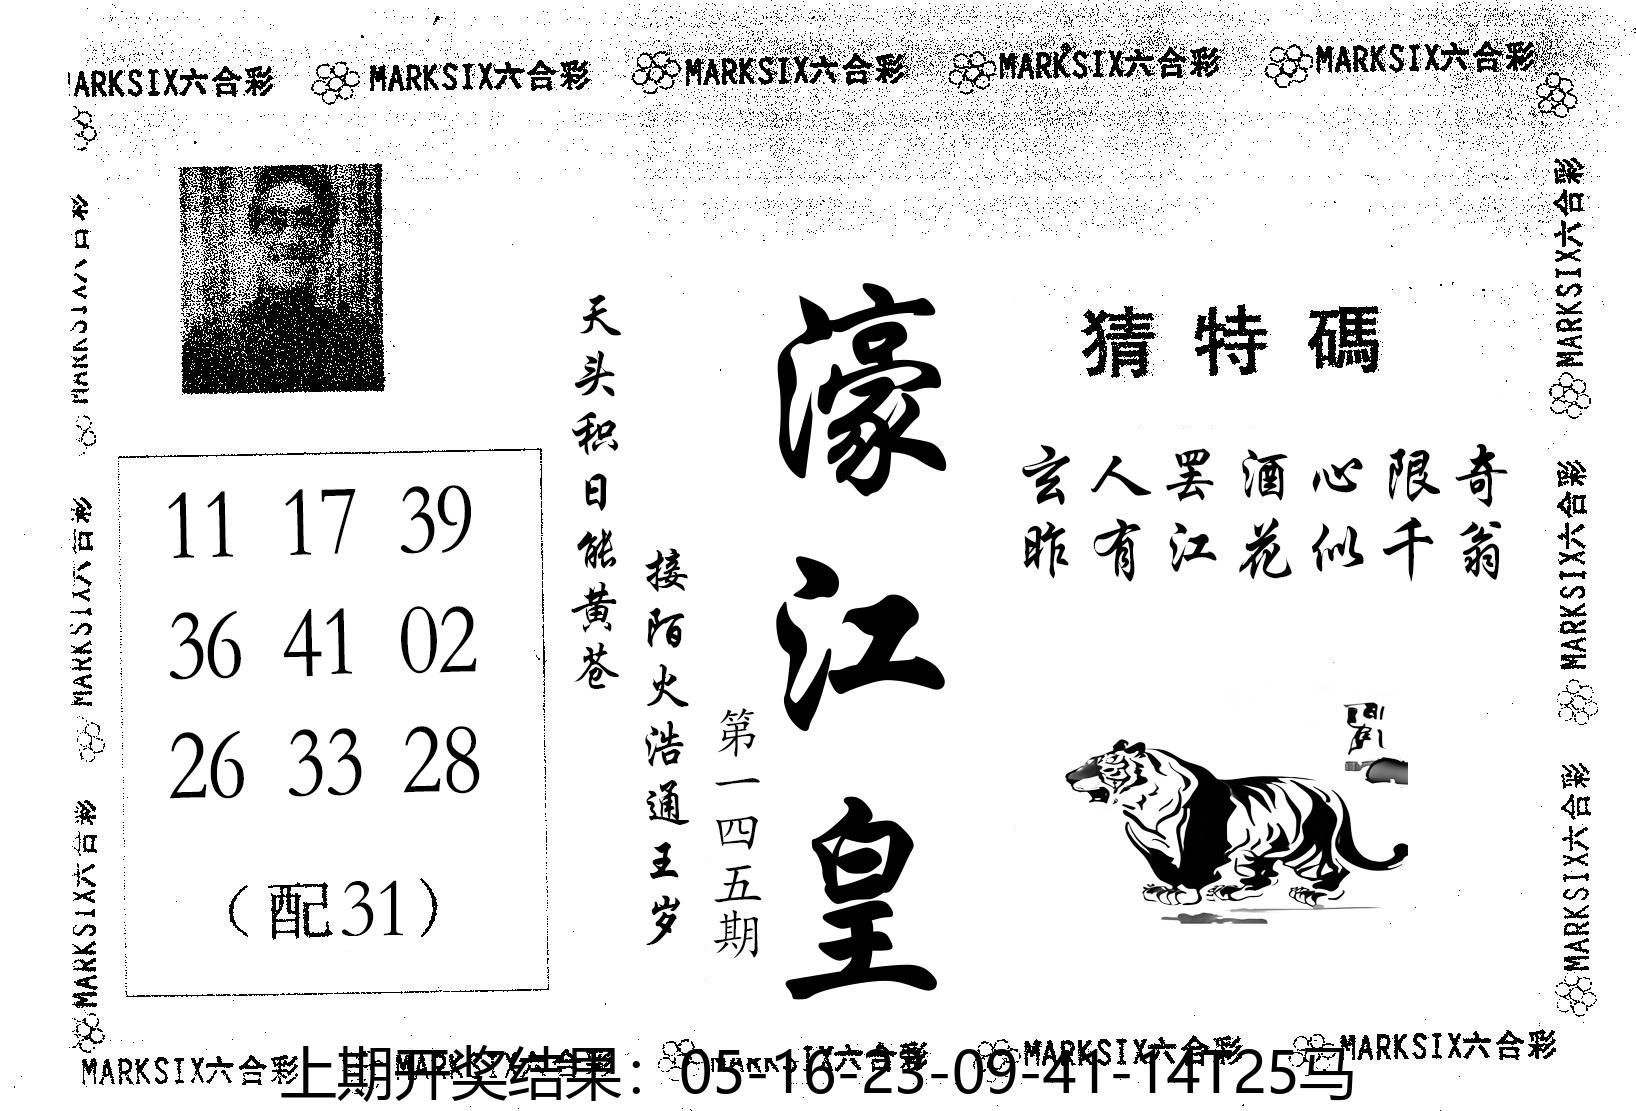 MARKSIX六合彩 MARKSIX六合彩 MARKSIX六合彩 MARKSIX六合彩 MARKSIX六合彩
猜特碼
玄人罢酒心限奇
昨有江花似千翁
濠江皇
第一四五期
接陌火浩通王岁
天头积日能黄苍
11 17 39
36 41 02
26 33 28
（配31）
MARKSIX六合彩
MARKSIX六合彩
MARKSIX六合彩
MARKSIX六合彩
MARKSIX六合彩
MARKSIX六合彩
MARKSIX六合彩 MARKSIX六合彩 MARKSIX六合彩 MARKSIX六合彩 MARKSIX六合彩
上期开奖结果：05-16-23-09-41-14T25马